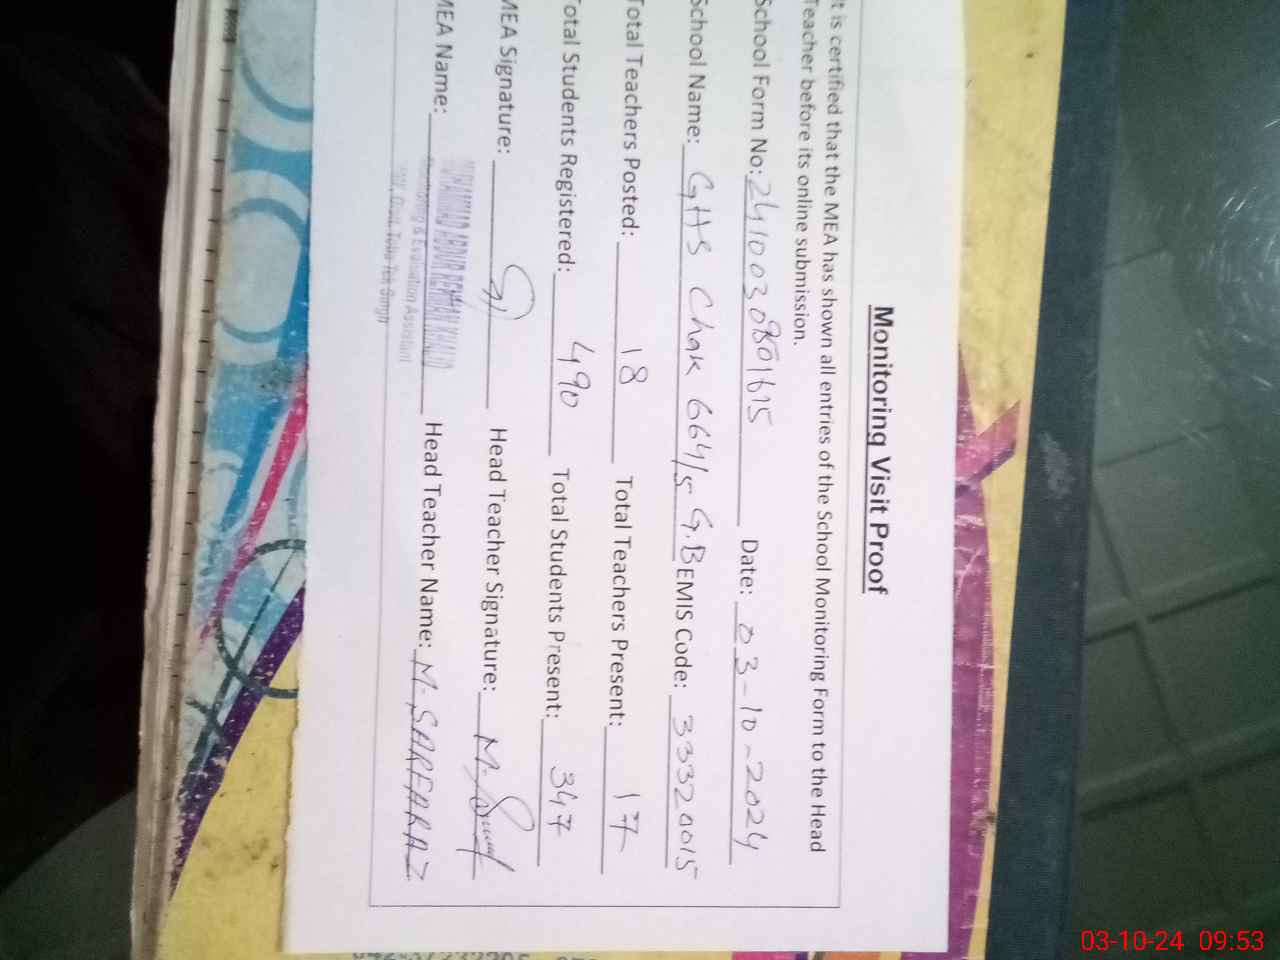 Monitoring Visit Proof
It is certified that the MEA has shown all entries of the School Monitoring Form to the Head
Teacher before its online submission.
School Form No: 2410030801615 Date: 03-10-2024
School Name: GHS Chak 664/5 G.B EMIS Code: 33320015
Total Teachers Posted: 18 Total Teachers Present: 17
Total Students Registered: 490 Total Students Present: 347
MEA Signature: Head Teacher Signature:
MEA Name: MUHAMMAD ABDUR REHMAN KHALID Head Teacher Name: M. SARFARAZ
Monitoring & Evaluation Assistant
Distt. Toba Tek Singh
03-10-24 09:53